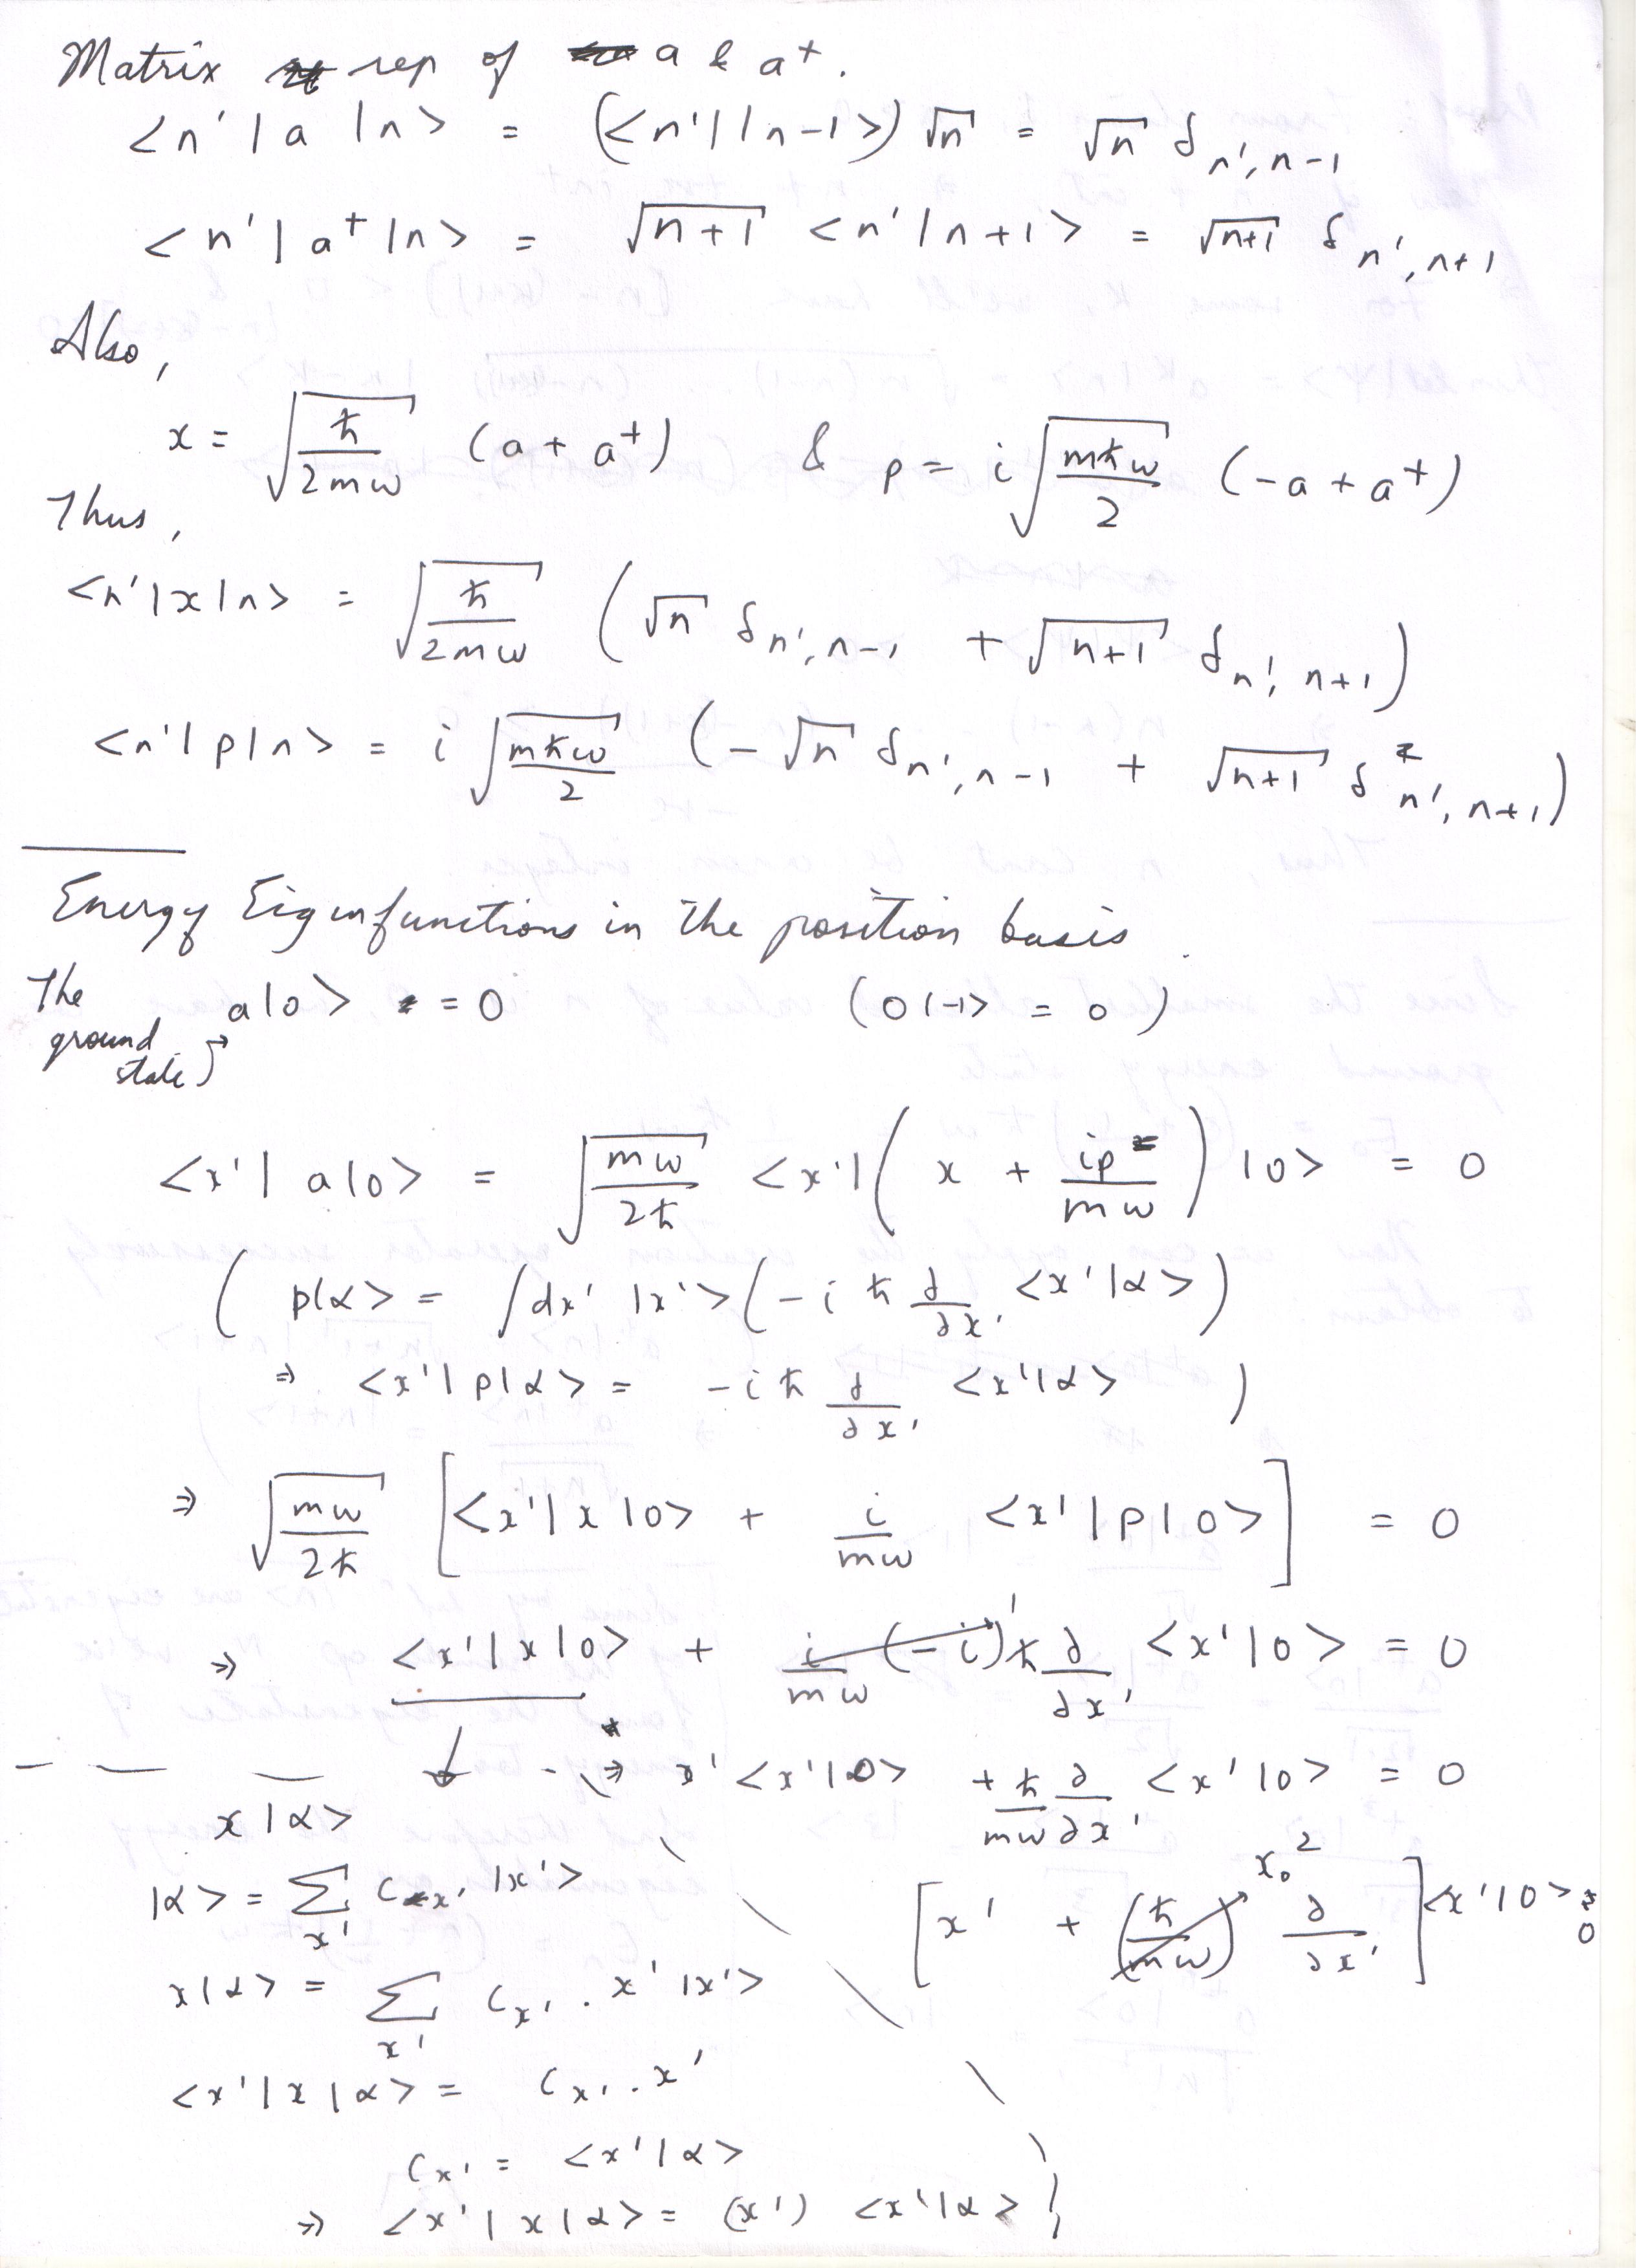 Matrix rep of a & a⁺.
<n'|a|n> = (<n'||n-1>) √n = √n δ_{n', n-1}
<n'|a⁺|n> = √(n+1) <n'|n+1> = √(n+1) δ_{n', n+1}
Also,
x = √(ħ/2mω) (a + a⁺) & p = i √(mħω/2) (-a + a⁺)
Thus,
<n'|x|n> = √(ħ/2mω) (√n δ_{n', n-1} + √(n+1) δ_{n', n+1})
<n'|p|n> = i √(mħω/2) (-√n δ_{n', n-1} + √(n+1) δ_{n', n+1})
Energy Eigenfunctions in the position basis.
The ground state
a|0> = 0 (0|-1> = 0)
<x'|a|0> = √(mω/2ħ) <x'|(x + ip/mω)|0> = 0
( p|α> = ∫dx' |x'> (-iħ ∂/∂x' <x'|α>)
⇒ <x'|p|α> = -iħ ∂/∂x' <x'|α> )
⇒ √(mω/2ħ) [<x'|x|0> + i/mω <x'|p|0>] = 0
⇒ <x'|x|0> + i/mω (-i)ħ ∂/∂x' <x'|0> = 0
⇒ x'<x'|0> + ħ/mω ∂/∂x' <x'|0> = 0
[x' + (ħ/mω) x₀² ∂/∂x'] <x'|0> = 0
x|α>
|α> = Σ_{x'} C_{x'} |x'>
x|α> = Σ_{x'} C_{x'} . x' |x'>
<x'|x|α> = C_{x'} . x'
C_{x'} = <x'|α>
⇒ <x'|x|α> = (x') <x'|α> }